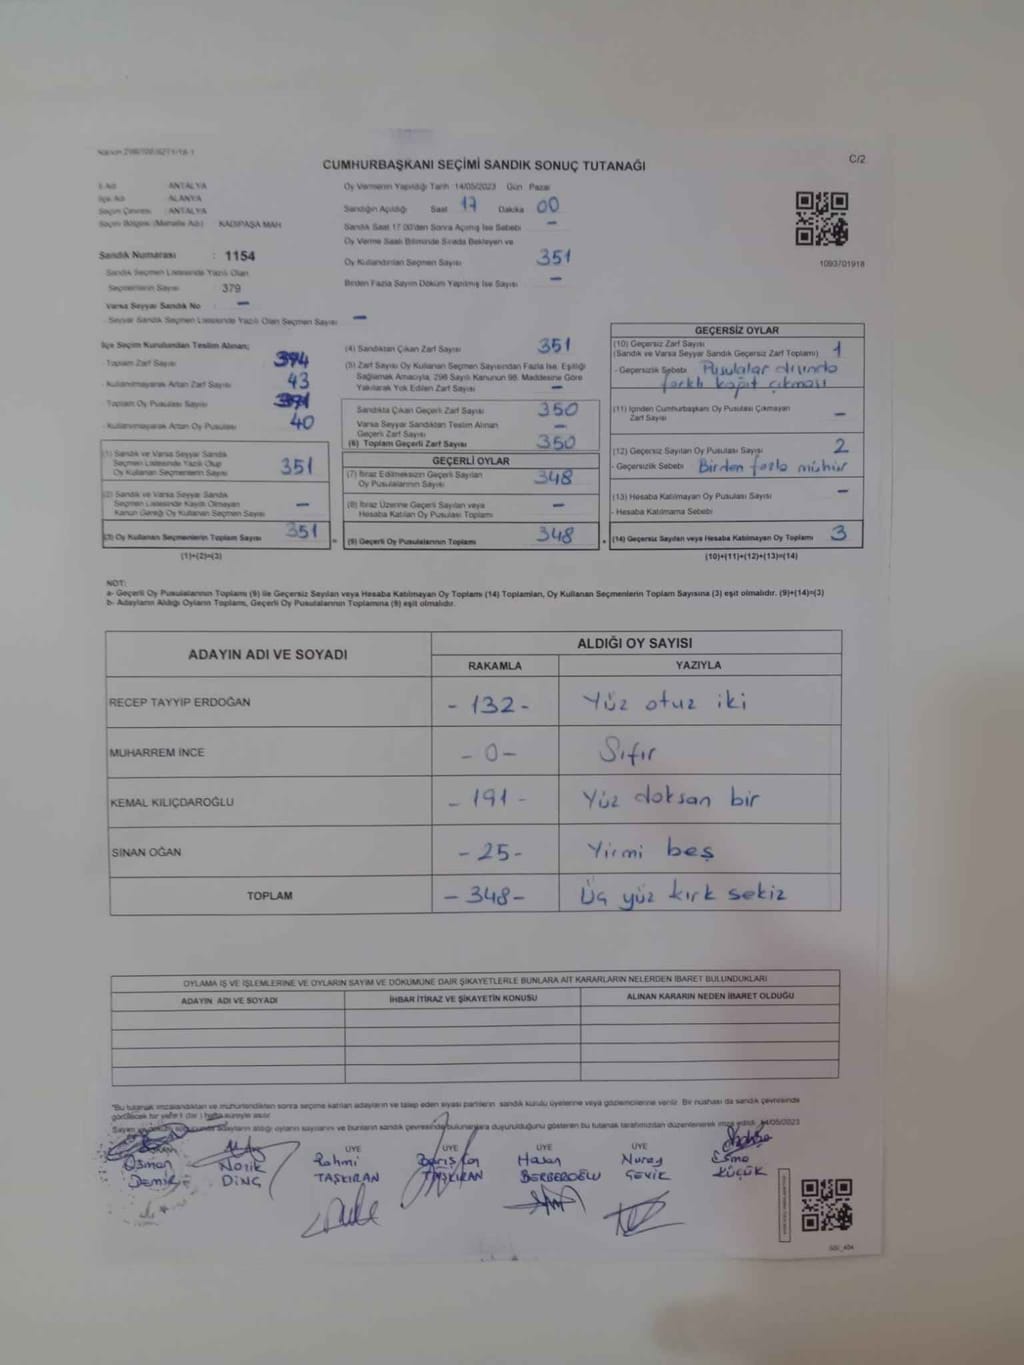 C/2
CUMHURBAŞKANI SEÇİMİ SANDIK SONUÇ TUTANAĞI
İl Adı ANTALYA
İlçe Adı ALANYA
Seçim Çevresi ANTALYA
Seçim Bölgesi (Mahalle Adı) KADIPAŞA MAH
Sandık Numarası : 1154
Sandık Seçmen Listesinde Yazılı Olan
Seçmenlerin Sayısı 379
Varsa Seyyar Sandık No –
- Seyyar Sandık Seçmen Listesinde Yazılı Olan Seçmen Sayısı –
Oy Vermenin Yapıldığı Tarih 14/05/2023 Gün Pazar
Sandığın Açıldığı Saat 17 Dakika 00
Sandık Saat 17.00'den Sonra Açılmış İse Sebebi –
Oy Verme Saati Bitiminde Sırada Bekleyen ve
Oy Kullandırılan Seçmen Sayısı 351
Birden Fazla Sayım Döküm Yapılmış İse Sayısı –
1093701918
İlçe Seçim Kurulundan Teslim Alınan;
- Toplam Zarf Sayısı 394
- Kullanılmayarak Artan Zarf Sayısı 43
- Toplam Oy Pusulası Sayısı 391
- Kullanılmayarak Artan Oy Pusulası 40
(1) Sandık ve Varsa Seyyar Sandık
Seçmen Listesinde Yazılı Olup
Oy Kullanan Seçmenlerin Sayısı 351
(2) Sandık ve Varsa Seyyar Sandık
Seçmen Listesinde Kayıtlı Olmayan
Kanun Gereği Oy Kullanan Seçmen Sayısı –
(3) Oy Kullanan Seçmenlerin Toplam Sayısı 351
(1)+(2)=(3)
(4) Sandıktan Çıkan Zarf Sayısı 351
(5) Zarf Sayısı Oy Kullanan Seçmen Sayısından Fazla İse, Eşitliği
Sağlamak Amacıyla, 298 Sayılı Kanunun 98. Maddesine Göre
Yakılarak Yok Edilen Zarf Sayısı –
Sandıkta Çıkan Geçerli Zarf Sayısı 350
Varsa Seyyar Sandıktan Teslim Alınan
Geçerli Zarf Sayısı –
(6) Toplam Geçerli Zarf Sayısı 350
GEÇERLİ OYLAR
(7) İtiraz Edilmeksizin Geçerli Sayılan
Oy Pusulalarının Sayısı 348
(8) İtiraz Üzerine Geçerli Sayılan veya
Hesaba Katılan Oy Pusulası Toplamı –
(9) Geçerli Oy Pusulalarının Toplamı 348
GEÇERSİZ OYLAR
(10) Geçersiz Zarf Sayısı
(Sandık ve Varsa Seyyar Sandık Geçersiz Zarf Toplamı) 1
- Geçersizlik Sebebi Pusulalar dışında
farklı kağıt çıkması
(11) İçinden Cumhurbaşkanı Oy Pusulası Çıkmayan
Zarf Sayısı –
(12) Geçersiz Sayılan Oy Pusulası Sayısı 2
- Geçersizlik Sebebi Birden fazla mühür
(13) Hesaba Katılmayan Oy Pusulası Sayısı –
- Hesaba Katılmama Sebebi
(14) Geçersiz Sayılan veya Hesaba Katılmayan Oy Toplamı 3
(10)+(11)+(12)+(13)=(14)
NOT:
a- Geçerli Oy Pusulalarının Toplamı (9) ile Geçersiz Sayılan veya Hesaba Katılmayan Oy Toplamı (14) Toplamları, Oy Kullanan Seçmenlerin Toplam Sayısına (3) eşit olmalıdır. (9)+(14)=(3)
b- Adayların Aldığı Oyların Toplamı, Geçerli Oy Pusulalarının Toplamına (9) eşit olmalıdır.
ADAYIN ADI VE SOYADI ALDIĞI OY SAYISI
RAKAMLA YAZIYLA
RECEP TAYYİP ERDOĞAN - 132 - Yüz otuz iki
MUHARREM İNCE - 0 - Sıfır
KEMAL KILIÇDAROĞLU - 191 - Yüz doksan bir
SİNAN OĞAN - 25 - Yirmi beş
TOPLAM - 348 - Üç yüz kırk sekiz
OYLAMA İŞ VE İŞLEMLERİNE VE OYLARIN SAYIM VE DÖKÜMÜNE DAİR ŞİKAYETLERLE BUNLARA AİT KARARLARIN NELERDEN İBARET BULUNDUKLARI
ADAYIN ADI VE SOYADI İHBAR İTİRAZ VE ŞİKAYETİN KONUSU ALINAN KARARIN NEDEN İBARET OLDUĞU
"Bu tutanak imzalandıktan ve mühürlendikten sonra seçime katılan adayların ve talep eden siyasi partilerin sandık kurulu üyelerine veya gözlemcilerine verilir. Bir nüshası da sandık çevresinde
görülecek bir yere 1 (bir) hafta süreyle asılır
adayların aldığı oyların sayılarını ve bunların sandık çevresinde bulunanlara duyurulduğunu gösteren bu tutanak tarafımızdan düzenlenerek imza edildi. 14/05/2023
ÜYE ÜYE ÜYE ÜYE
Osman Demir
DİNÇ
Rahmi TAŞKIRAN
TAŞKIRAN
Hasan BERBEROĞLU
Nuray ÇEVİK
Esma KÜÇÜK